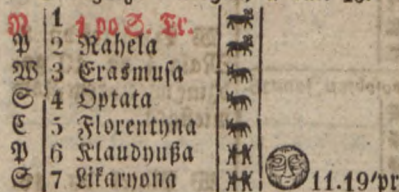 N 1 1 po S. Tr.
P 2 Rahela
W 3 Erasmusa
S 4 Optata
C 5 Florentyna
P 6 Klaudyußa
S 7 Likaryona 11.19'pr